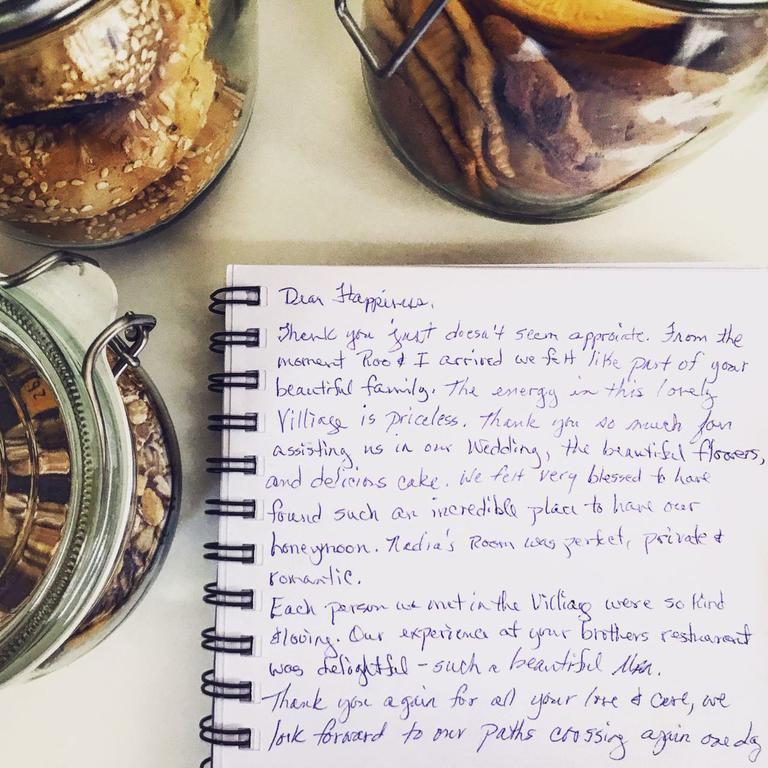 Dear Happiness,
Thank you just doesn't seem approiate. From the
moment Roo & I arrived we felt like part of your
beautiful family. The energy in this lovely
Villiage is priceless. Thank you so much for
assisting us in our Wedding, the beautiful flowers,
and delicious cake. We felt very blessed to have
found such an incredible place to have our
honeymoon. Nadia's Room was perfect, private &
romantic.
Each person we met in the Villiag were so kind
& loving. Our experience at your brothers restaurant
was delightful - such a beautiful
Thank you again for all your love & care, we
look forward to our paths crossing again one day